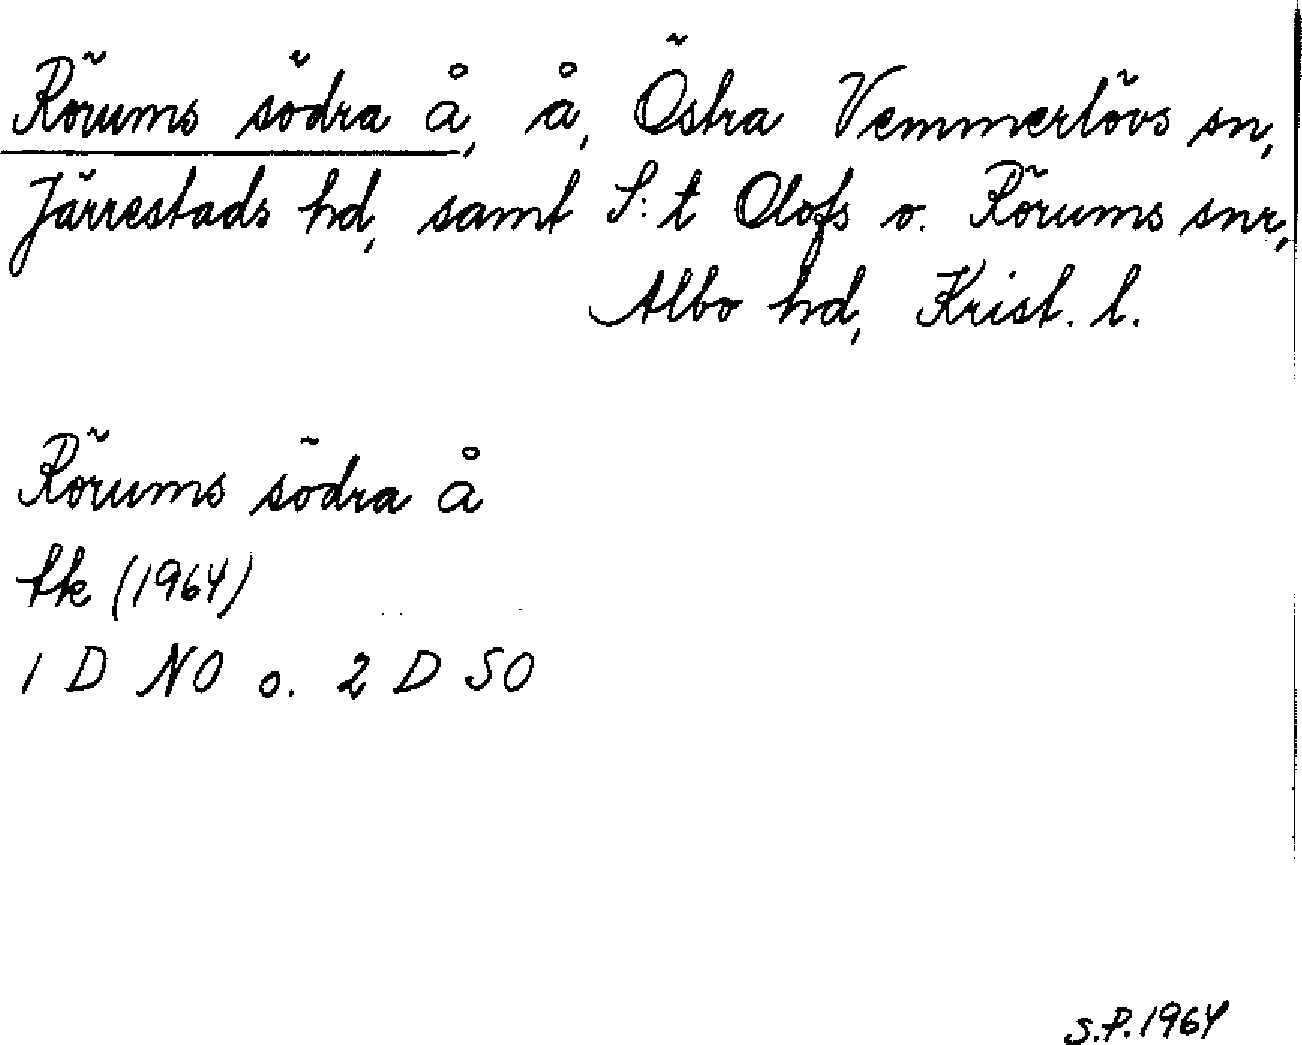 Rörums södra å, å, Östra Vemmerlövs sn,
Järrestads hd, samt S:t Olofs o. Rörums snr,
Albo hd, Krist. l.
Rörums södra å
tk (1964)
1 D NO o. 2 D SO
S.P. 1964